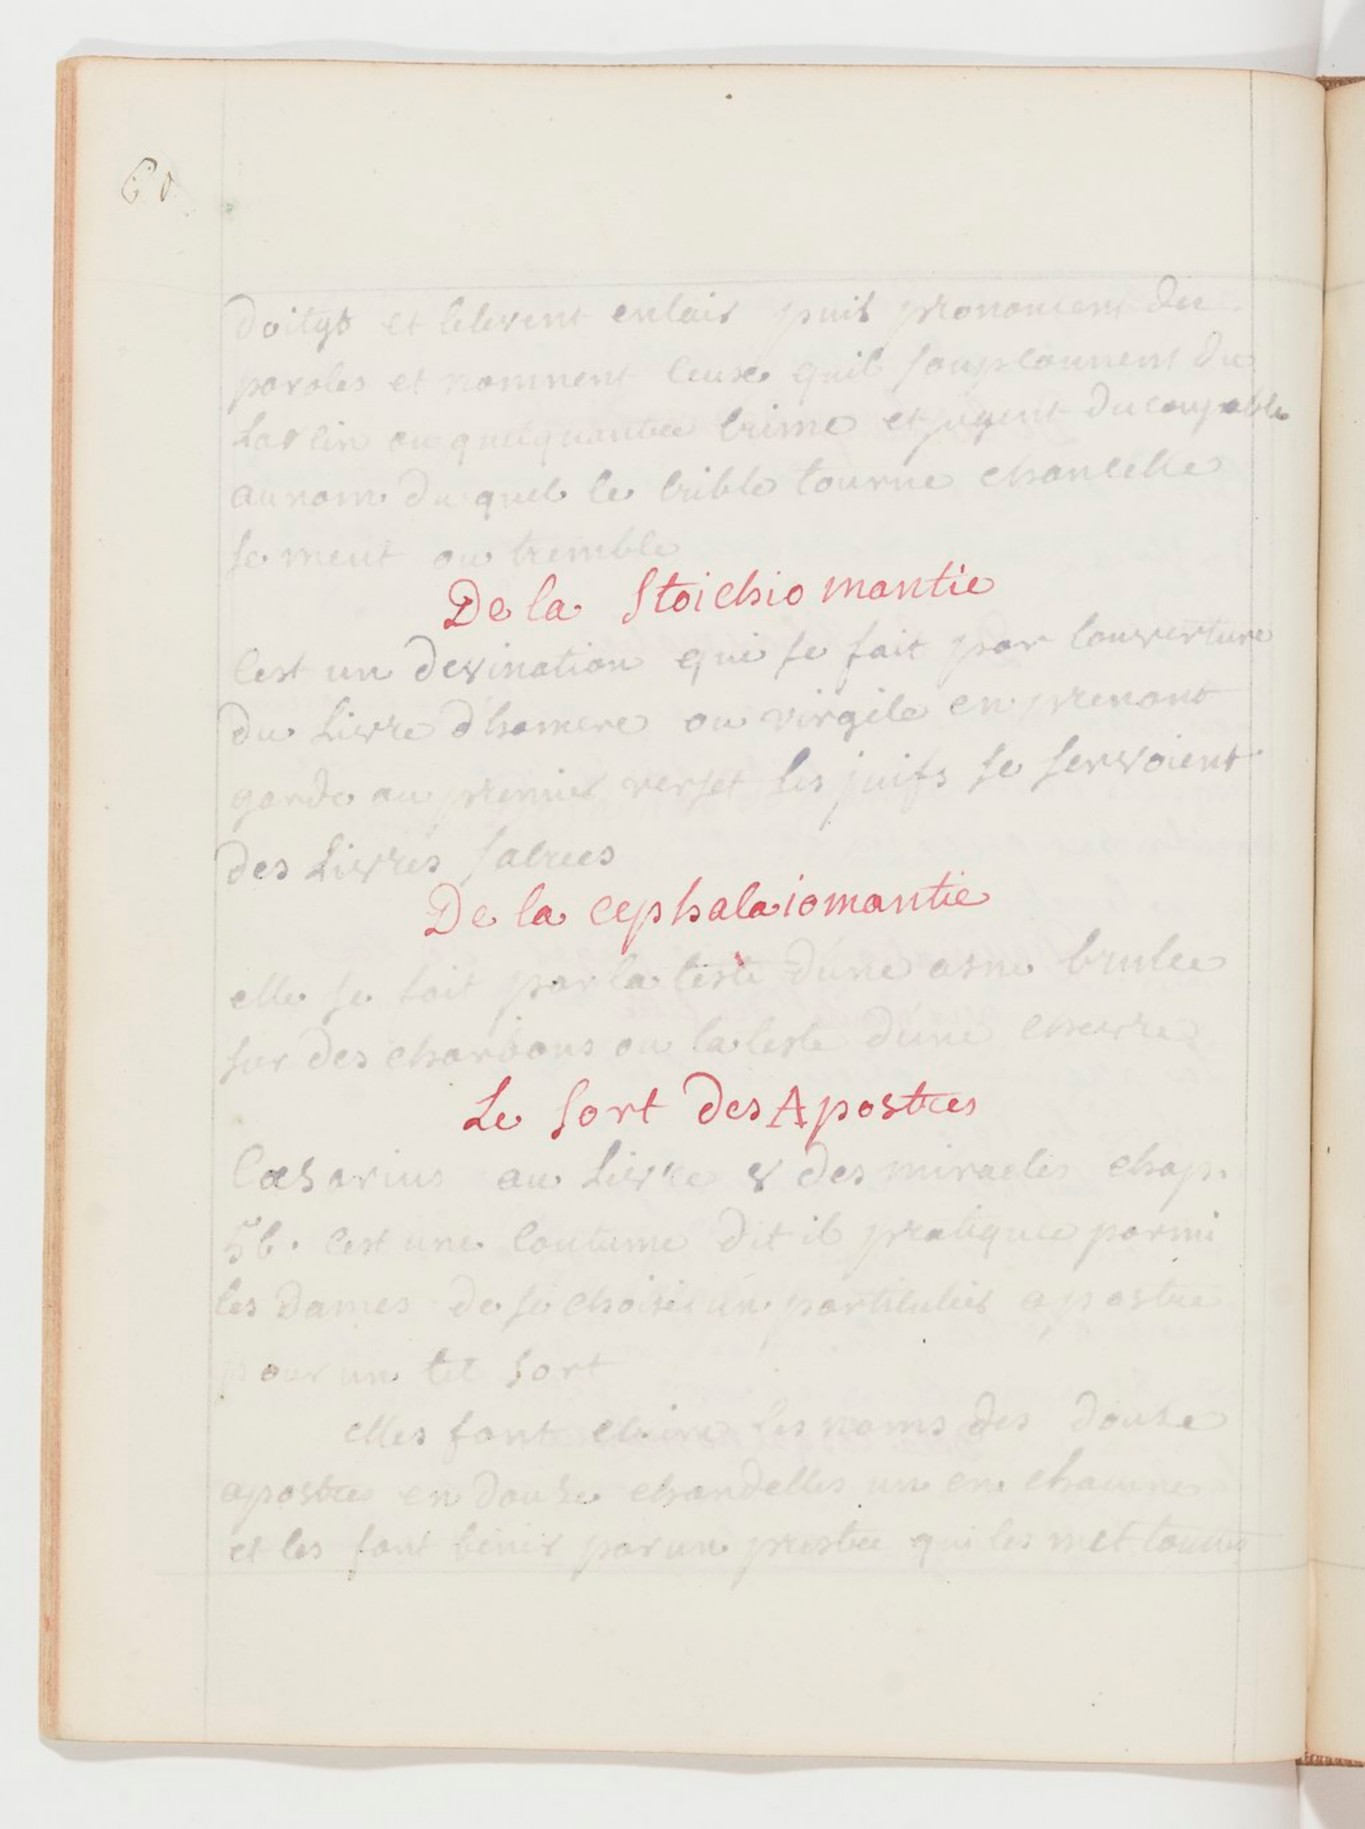 60
doitgs et lelevent enlair puis prononcent des
paroles et nomment ceux quil soupconnent du
Larcin ou quelquautre crime et jugent du coupable
au nom du quel le crible tourne chancelle
se meut ou tremble
De la Stoichiomantie
Cest un devination qui se fait par louverture
du Livre d'homere ou virgile en prenant
garde au premier verset les juifs se servoient
des Livres Sacrees
De la cephalaiomantie
elle se fait par la teste d'une asne brulee
sur des charbons ou la teste d'une chevre
Le Sort des Apostres
Cæsarius au Livre 8 des miracles chap.
56. Cest une coutume dit il pratiquee parmi
les Dames de se choisir un particulier apostre
pour un tel Sort
elles font ecrire les noms des douze
apostres en douze chandelles un en chacune
et les font benir par un prestre qui les met toutes